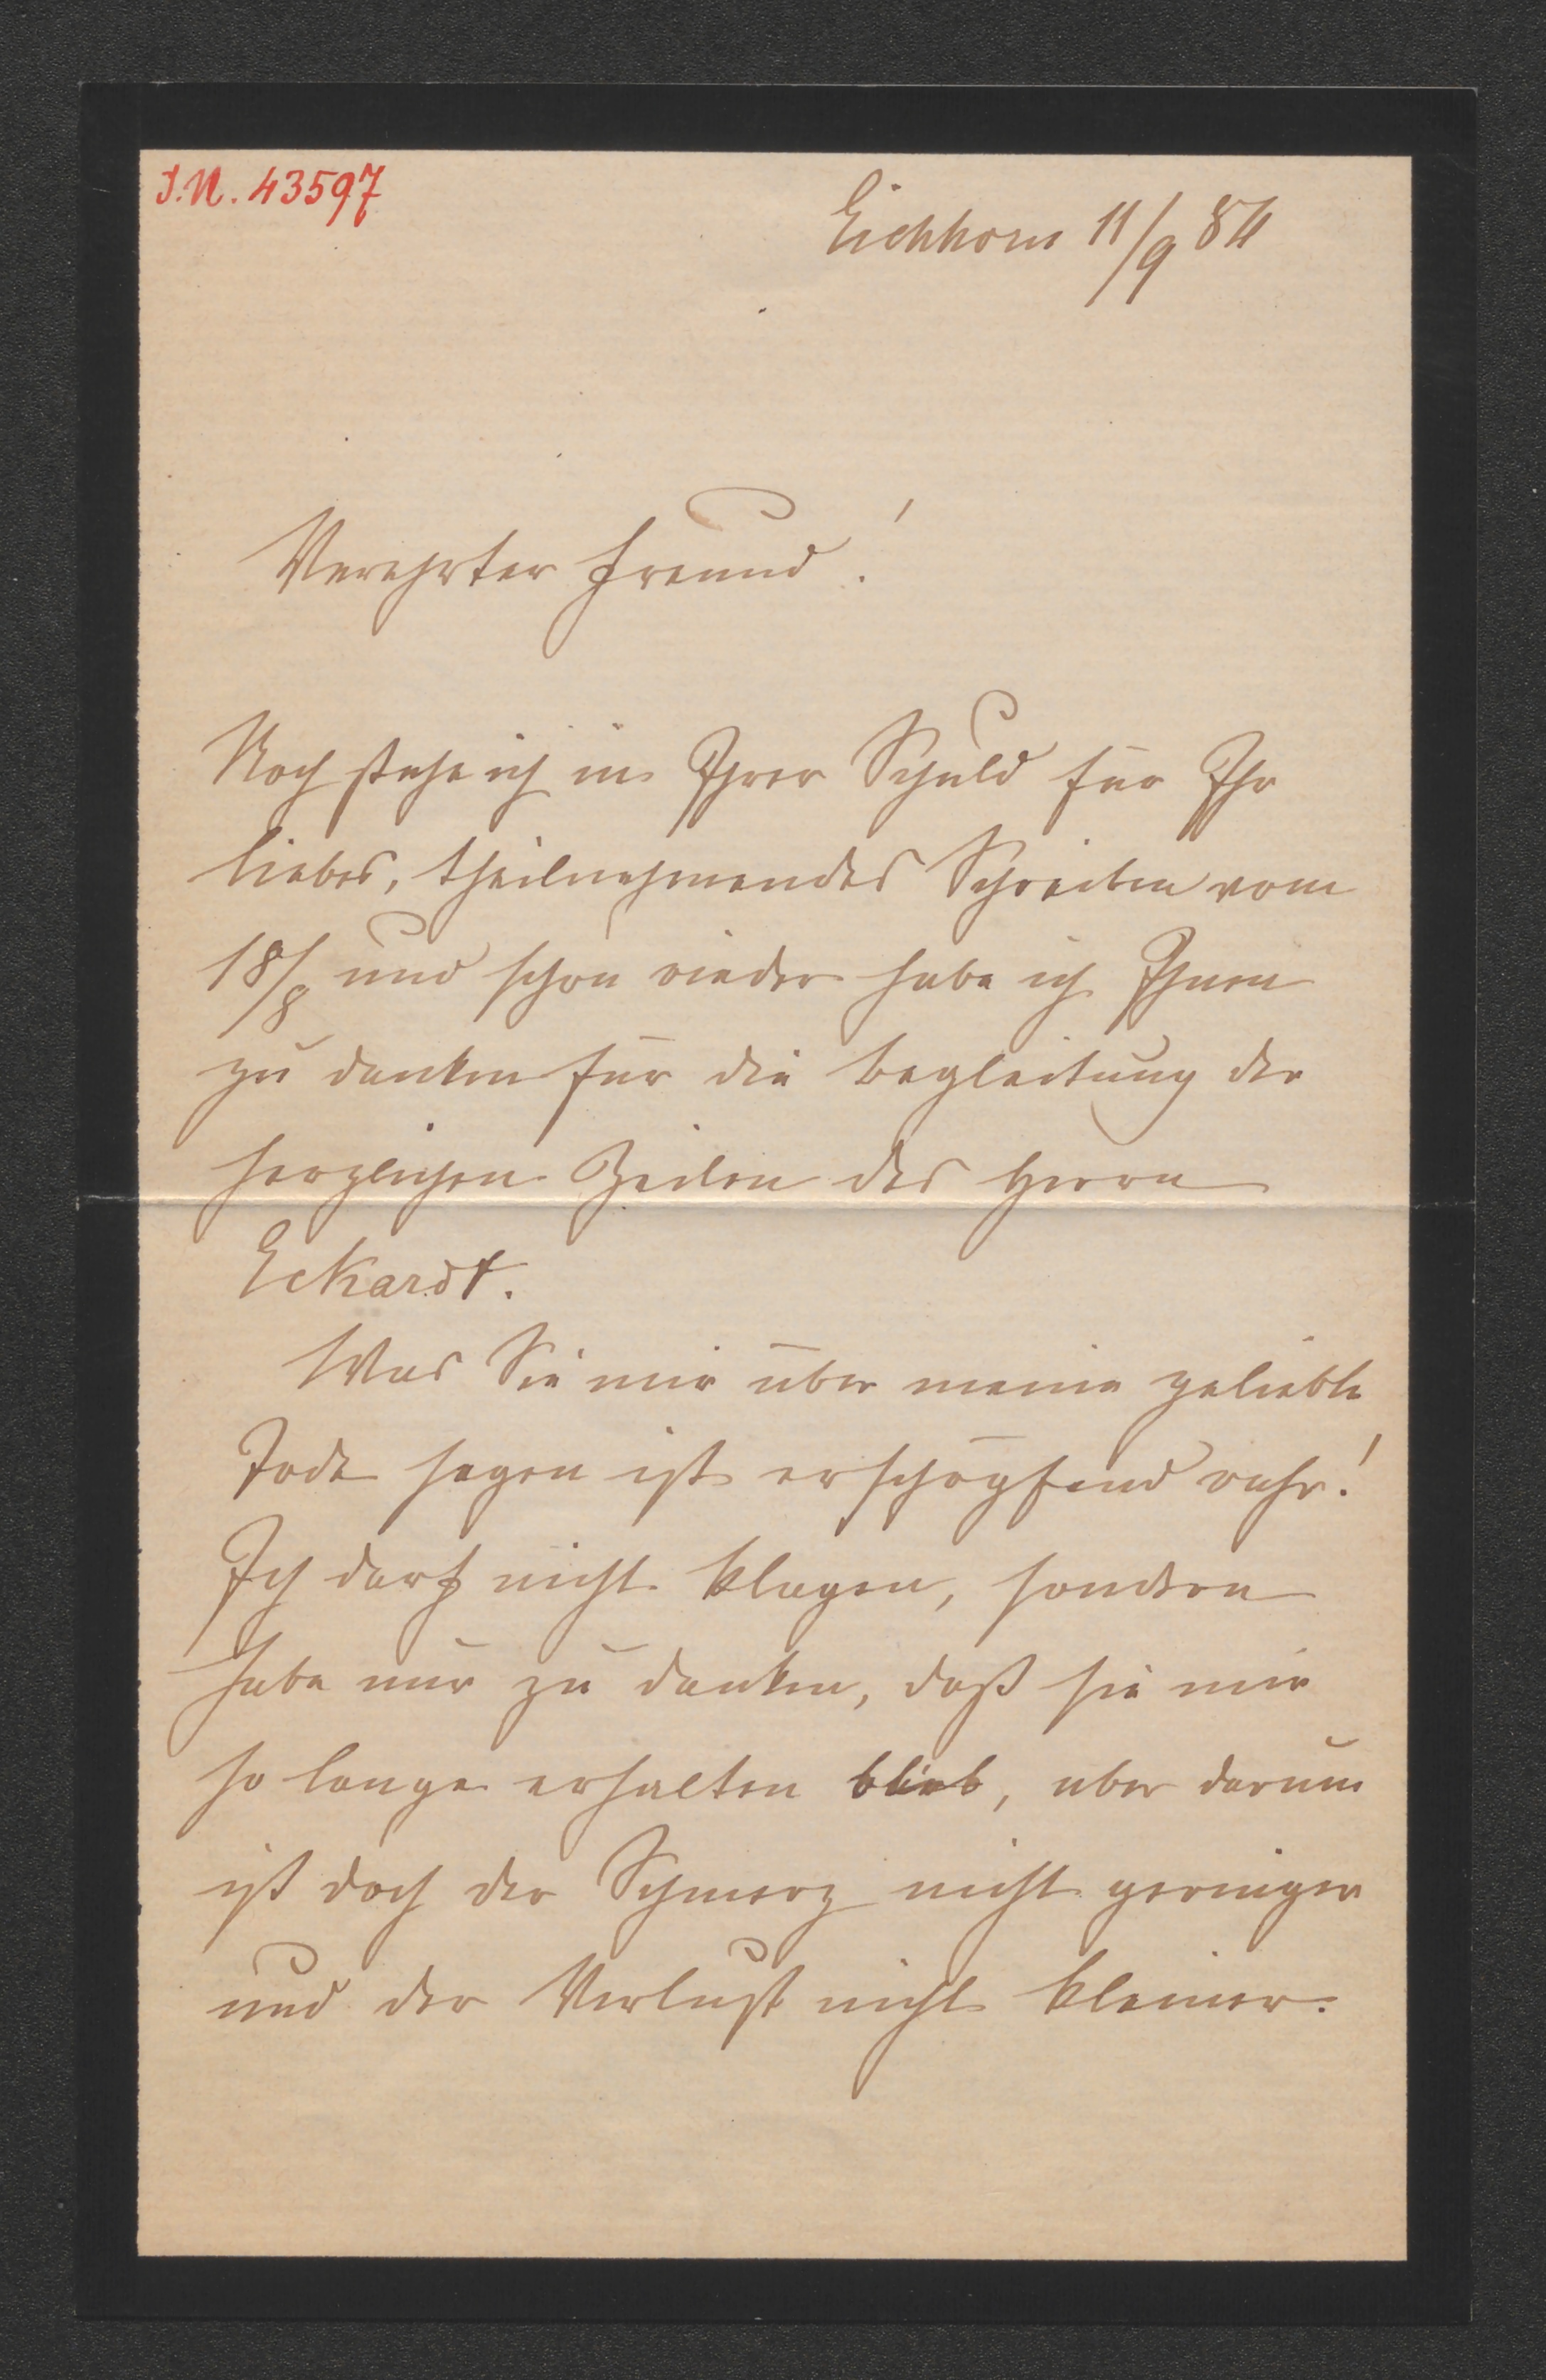 I.N. 43597
Eichhorn 11/9 84
Verehrter Freund!
Noch stehe ich in Ihrer Schuld für Ihr
liebes, theilnehmendes Schreiben vom
18/8 und schon wieder habe ich Ihnen
zu danken für die Begleitung der
herzlichen Zeilen des Herrn
Eckardt.
Was Sie mir über meine geliebte
Todte sagen ist erschöpfend wahr!
Ich darf nicht klagen, sondern
habe nur zu danken, daß sie mir
so lange erhalten blieb, aber darum
ist doch der Schmerz nicht geringer
und der Verlust nicht kleiner.